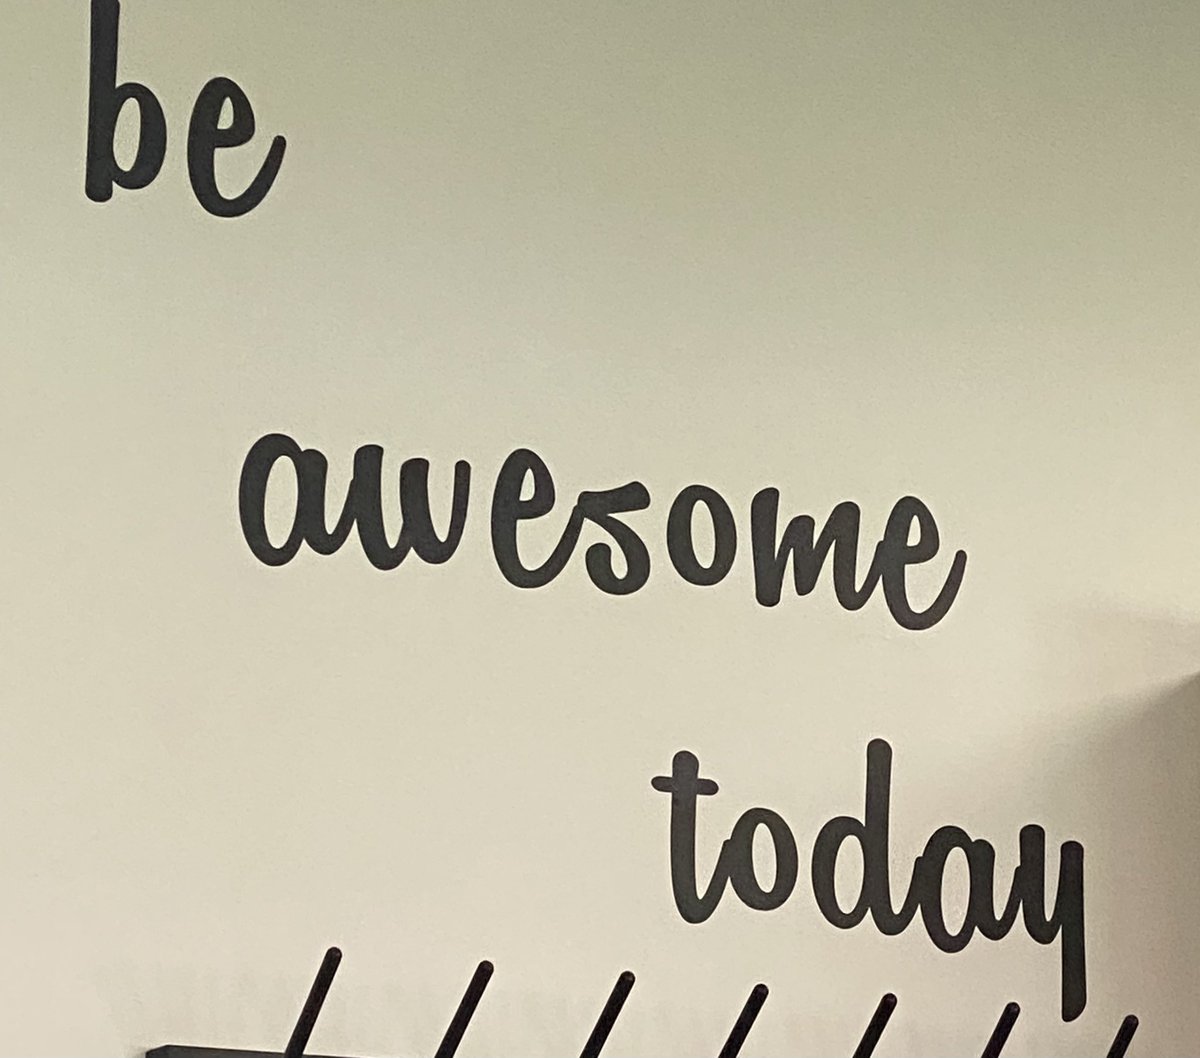 be
awesome
today